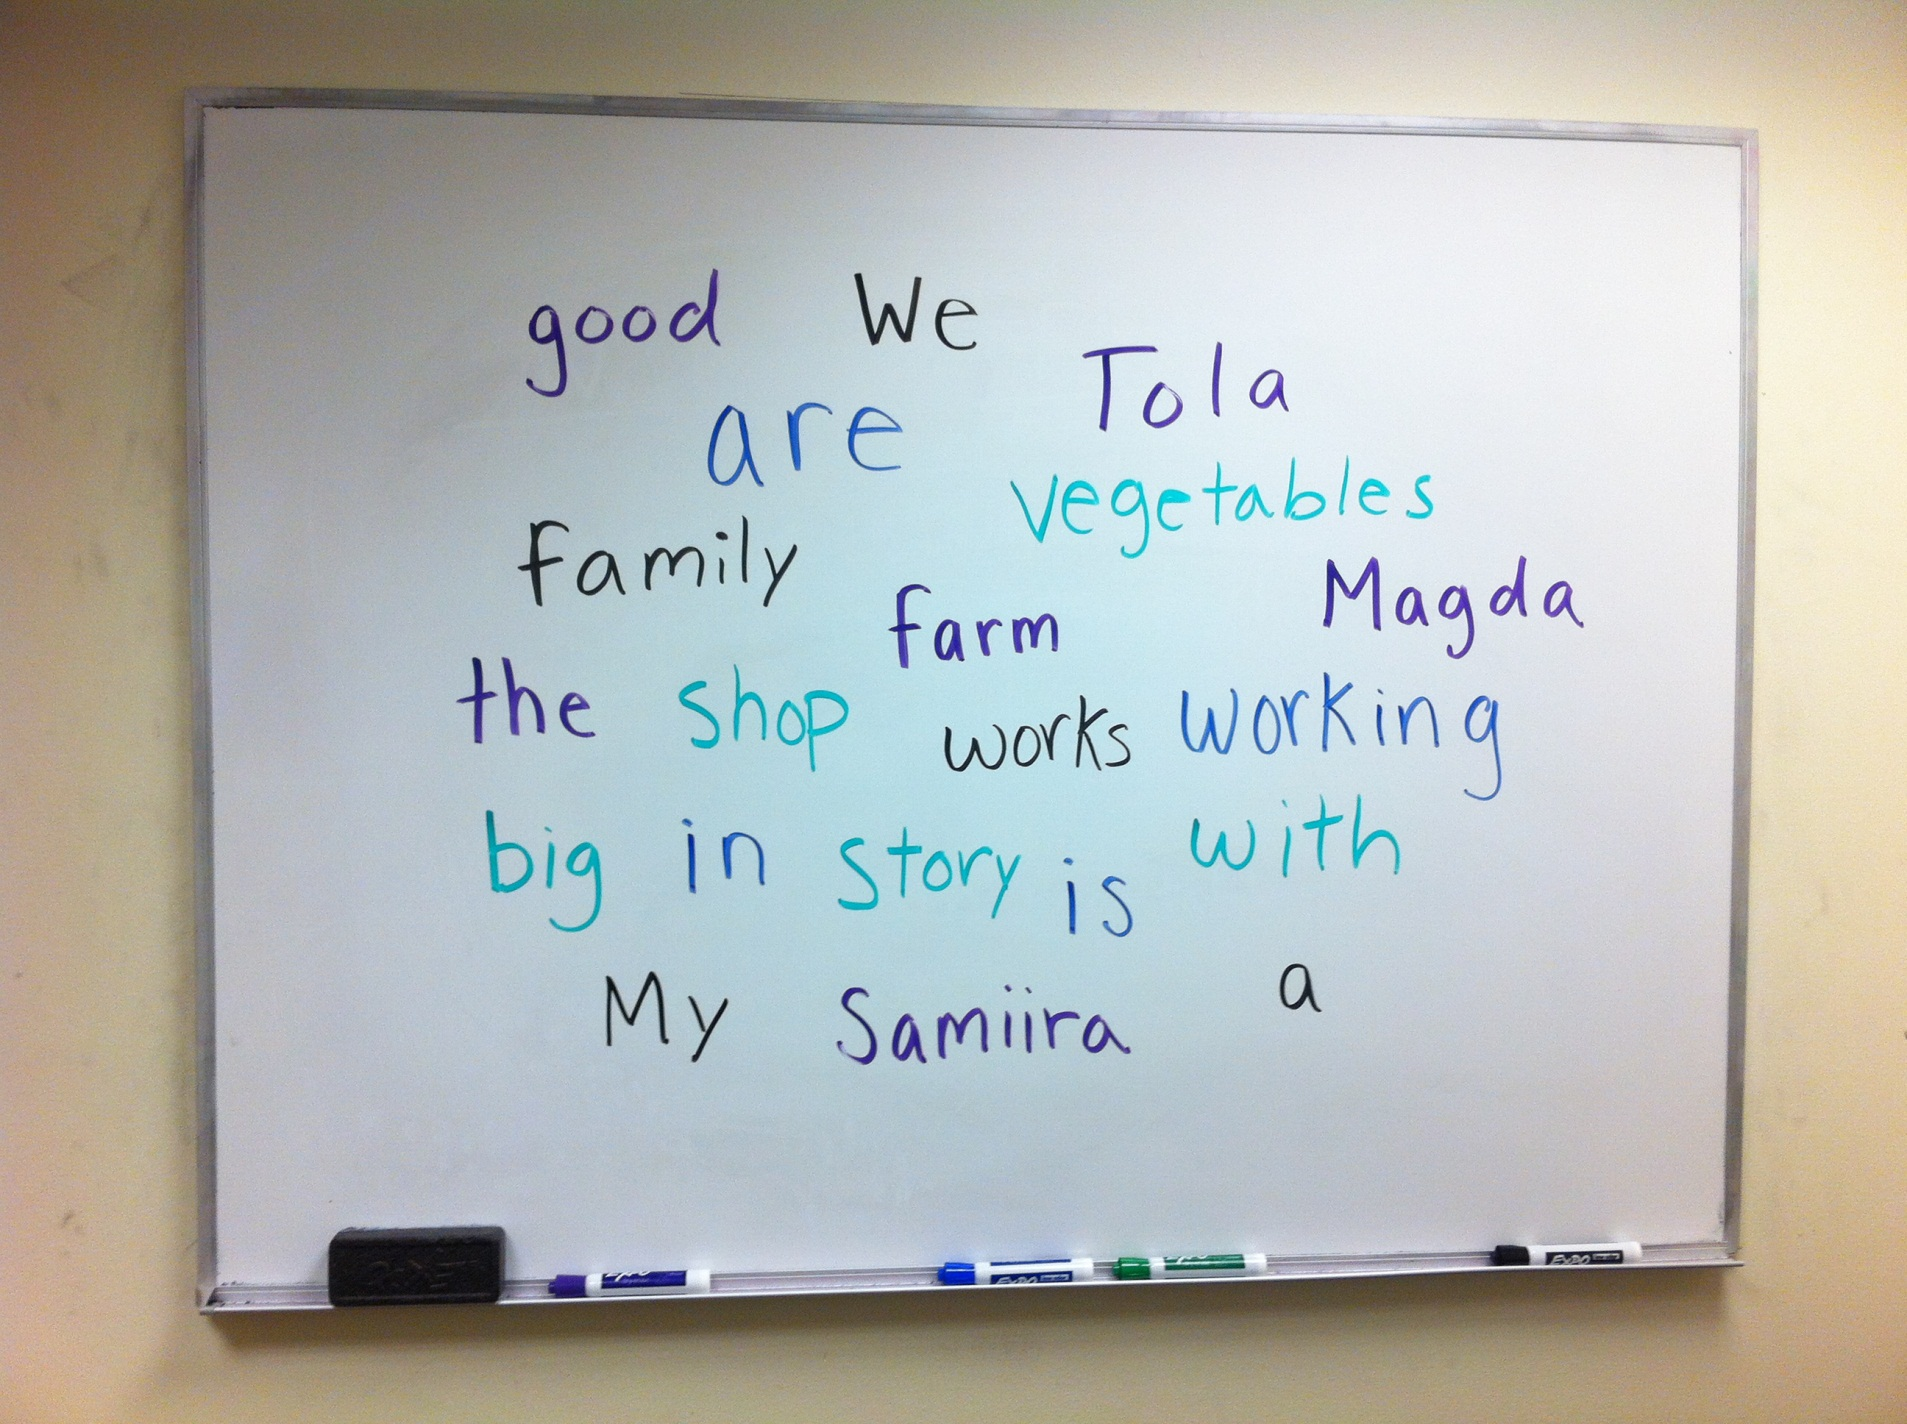 good We
Tola
are
vegetables
family
farm Magda
the shop works working
big in story is with
My Samiira a
EXPO
EXPO
EXPO
EXPO